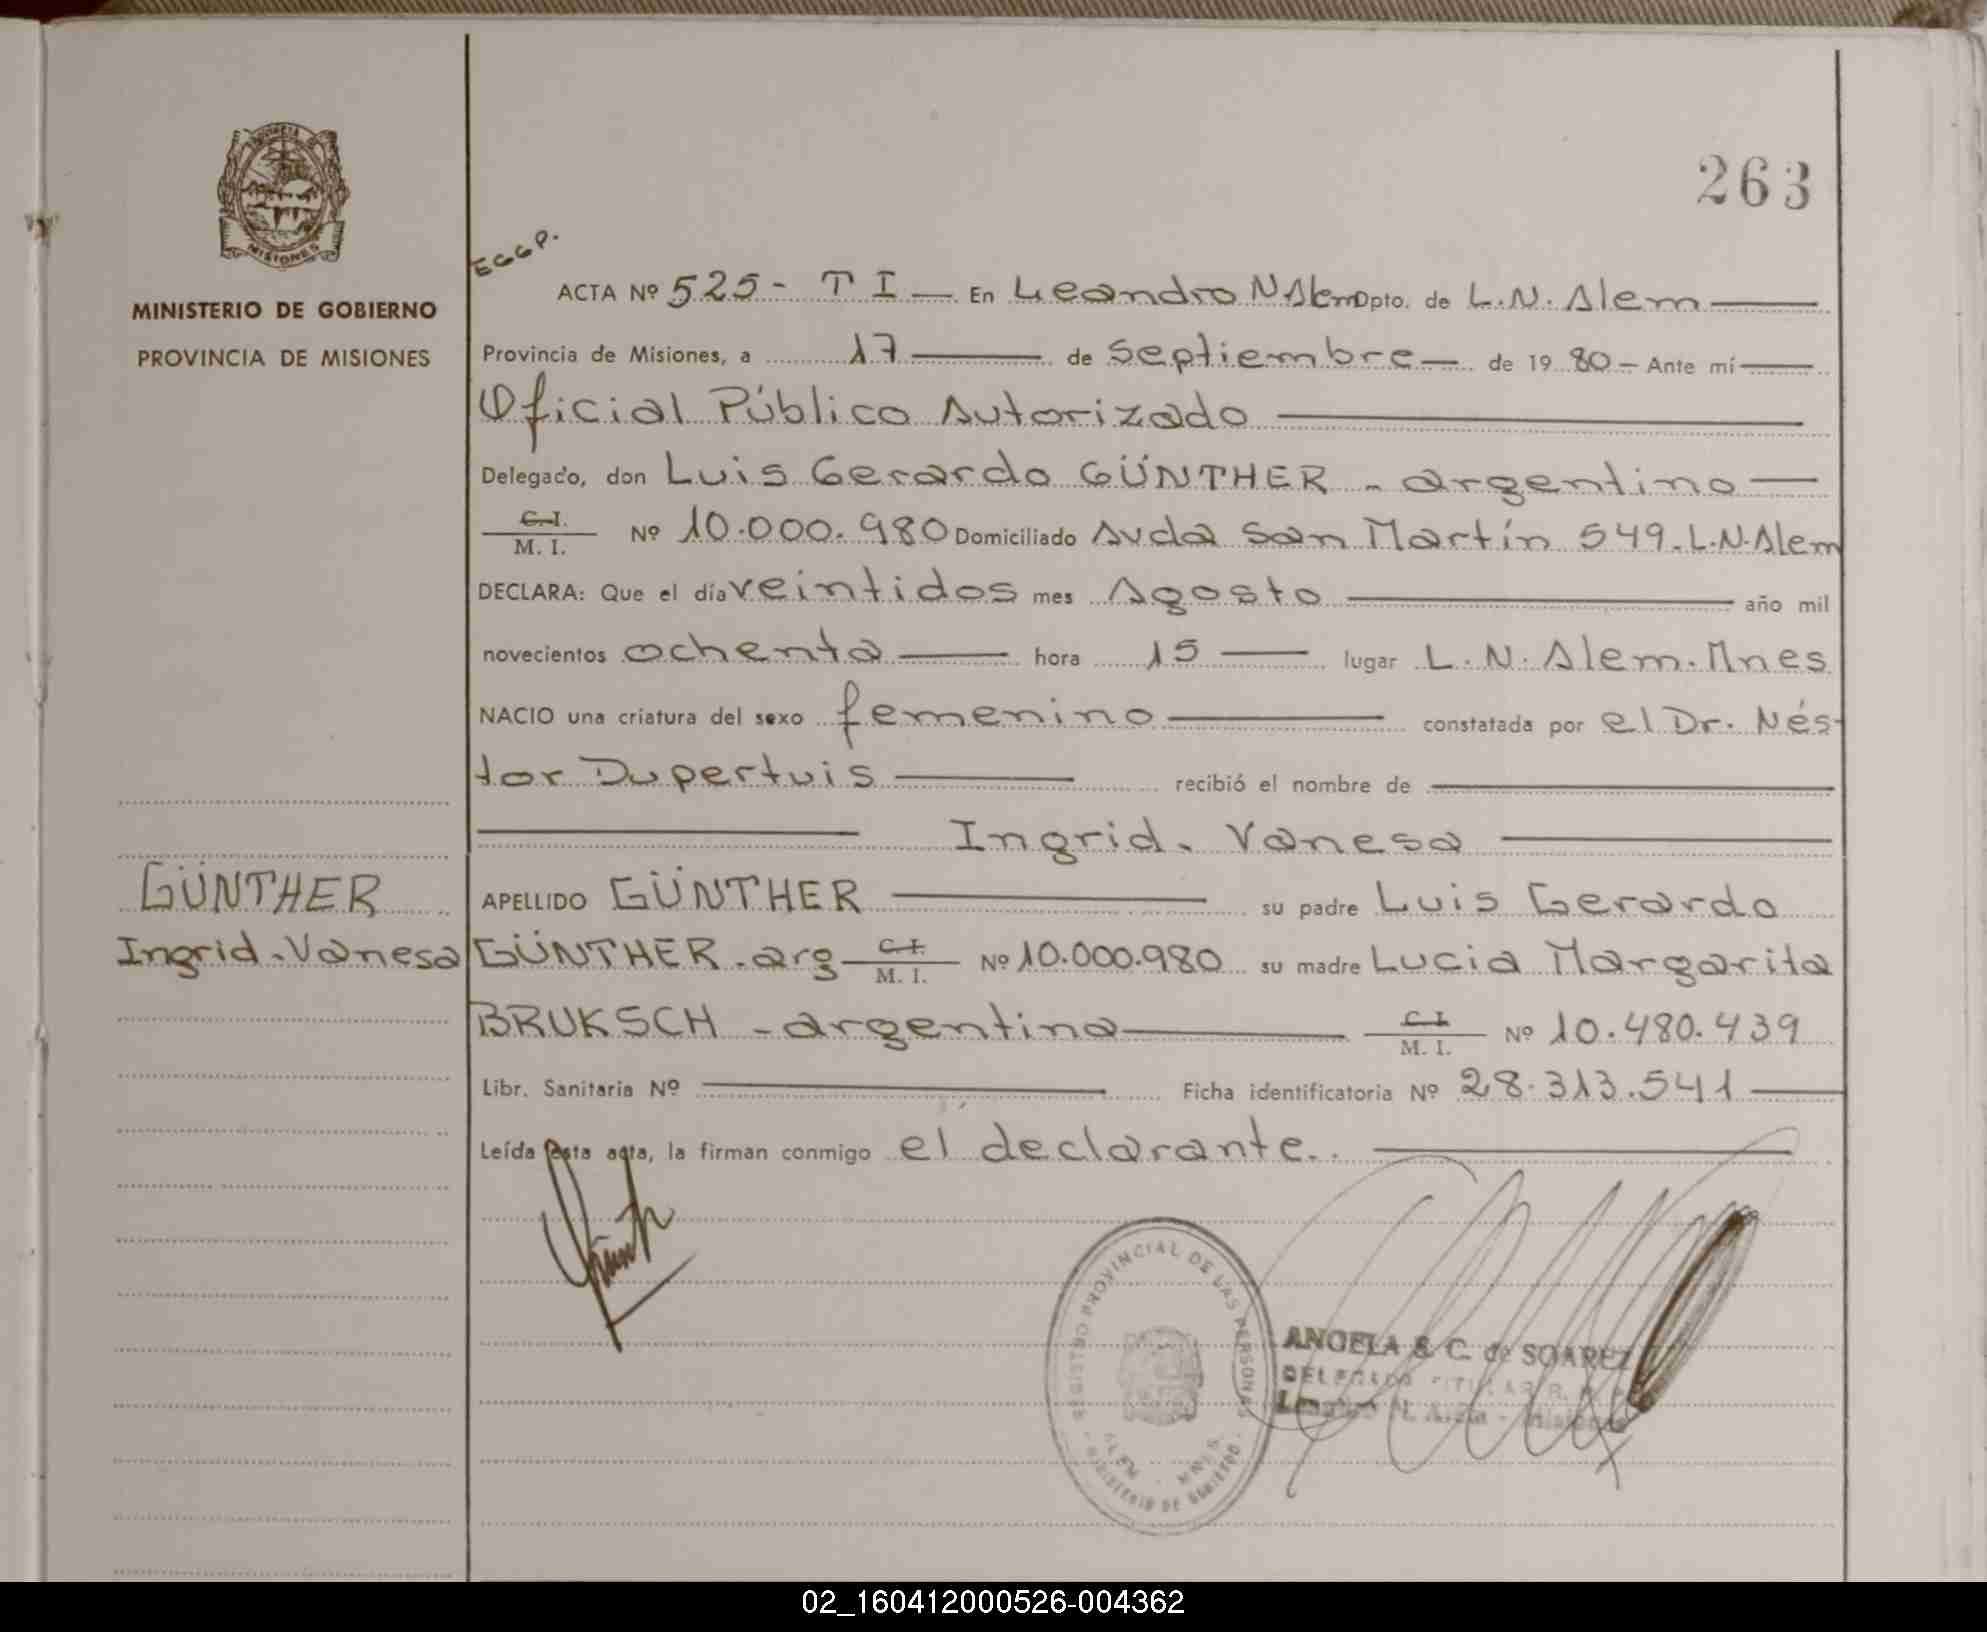 263
PROVINCIA DE
MISIONES
MINISTERIO DE GOBIERNO
PROVINCIA DE MISIONES
EGGP.
ACTA Nº 525 - T I — En Leandro N Alem Dpto. de L. N. Alem —
Provincia de Misiones, a 17 — de Septiembre — de 19 80 — Ante mí —
Oficial Público Autorizado —
Delegado, don Luis Gerardo GÜNTHER - argentino —
C. I.
M. I.
Nº 10.000.980 Domiciliado Avda San Martín 549. L.N. Alem
DECLARA: Que el día veintidos mes Agosto — año mil
novecientos ochenta — hora 15 — lugar L. N. Alem. Mnes
NACIO una criatura del sexo femenino — constatada por el Dr. Nés-
tor Dupertuis — recibió el nombre de —
— Ingrid. Vanesa —
GÜNTHER
Ingrid. Vanesa
APELLIDO GÜNTHER — su padre Luis Gerardo
GÜNTHER. arg — C. I. M. I. Nº 10.000.980 su madre Lucia Margarita
BRUKSCH - argentina — C. I. M. I. Nº 10.480.439
Libr. Sanitaria Nº — Ficha identificatoria Nº 28.313.541 —
Leída esta acta, la firman conmigo el declarante. . —
REGISTRO PROVINCIAL DE LAS PERSONAS
ALEM - MNES.
- MINISTERIO DE GOBIERNO -
ANGELA S. C. de SOAREZ
DELEGADA TITULAR R. P. P.
Leandro N. Alem - Misiones
02_160412000526-004362